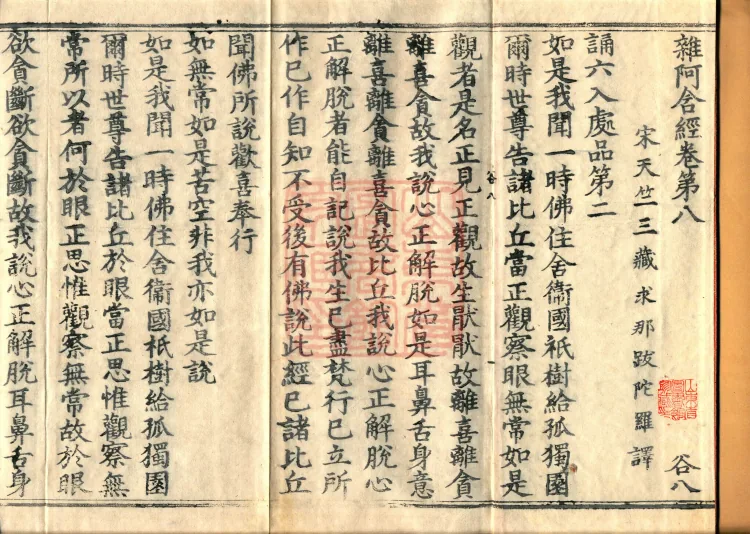 雜阿含經卷第八 谷八
宋天竺三藏求那跋陀羅譯
誦六入處品第二
如是我聞一時佛住舍衞國祇樹給孤獨園
爾時世尊告諸比丘當正觀察眼無常如是
觀者是名正見正觀故生厭厭故離喜離貪
谷八
離喜貪故我說心正解脫如是耳鼻舌身意
離喜離貪離喜貪故比丘我說心正解脫心
正解脫者能自記說我生已盡梵行已立所
作已作自知不受後有佛說此經已諸比丘
聞佛所說歡喜奉行
如無常如是苦空非我亦如是說
如是我聞一時佛住舍衞國祇樹給孤獨園
爾時世尊告諸比丘於眼當正思惟觀察無
常所以者何於眼正思惟觀察無常故於眼
欲貪斷欲貪斷故我說心正解脫耳鼻舌身